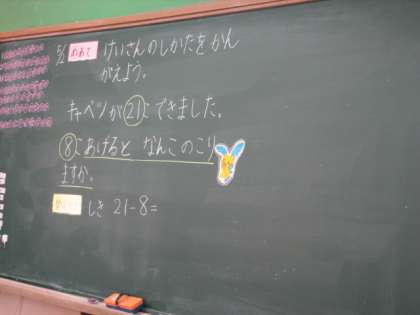 5/2 めあて けいさんのしかたをかん
がえよう。
キャベツが21こできました。
8こあげると なんこのこり
ますか。
しき 21-8=